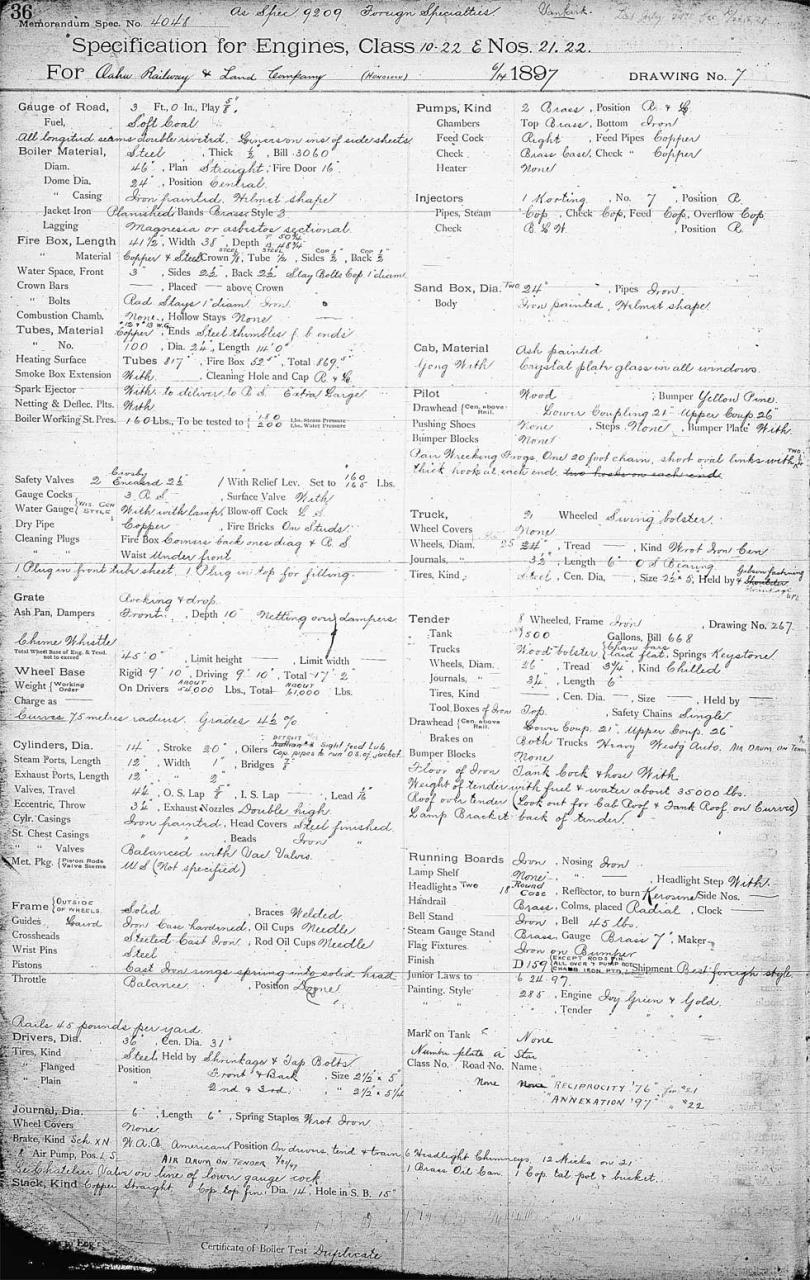 36
As Spec 9209 Foreign Specialties
Memorandum Spec. No. 4048
Specification for Engines, Class 10-22 E Nos. 21. 22.
For Oahu Railway & Land Company (Honolulu) 6/4 1897 DRAWING No. 7
Gauge of Road, 3 Ft., 0 In., Play 5/8.
Fuel, Soft Coal
All longitud seams double riveted. Liners on ins of side sheets
Boiler Material, Steel, Thick 1/2, Bill 3060
Diam. 46", Plan Straight, Fire Door 16"
Dome Dia. 24", Position Central.
" Casing Iron painted, Helmet shape
Jacket Iron Planished Bands Brass, Style 3
Lagging Magnesia or asbestos sectional.
Fire Box, Length 41 1/2, Width 38", Depth
" Material Copper & Steel Crown, Tube 1/2, Sides 1/2, Back 1/2
Water Space, Front 3", Sides 2 1/2, Back 2 1/2 Stay Bolts Cop 1" diam
Crown Bars —, Placed — above Crown
" Bolts Rad Stays 1" diam Iron
Combustion Chamb. None, Hollow Stays None
Tubes, Material Copper, Ends Steel thimbles f. b. ends
" No. 100, Dia. 2 1/4, Length 14' 0"
Heating Surface Tubes 817", Fire Box 52.5, Total 869.5
Smoke Box Extension With, Cleaning Hole and Cap R & L
Spark Ejector With to deliver to R S Extra Large
Netting & Deflec. Plts. With
Boiler Working St. Pres. 160 Lbs., To be tested to 180 Lbs. Steam Pressure 200 Lbs. Water Pressure
Safety Valves 2 Crosby Encased 2 1/2 1 With Relief Lev. Set to 160 165 Lbs.
Gauge Cocks 3 R. S., Surface Valve With
Water Gauge { Wis. Gen Style With with lamp, Blow-off Cock L S
Dry Pipe Copper, Fire Bricks On Studs.
Cleaning Plugs Fire Box Corners back ones diag & R S
" " Waist Under front
1 Plug in front tube sheet, 1 Plug in top for filling.
Grate Rocking & drop.
Ash Pan, Dampers Front, Depth 10" Netting over dampers.
Chime Whistle
Total Wheel Base of Eng. & Tend. not to exceed 45' 0", Limit height —, Limit width
Wheel Base Rigid 9' 10", Driving 9' 10", Total 17' 2"
Weight { Working Order On Drivers about 54,000 Lbs., Total about 61,000 Lbs.
Charge as —
Curves 75 metres radius. Grades 4 1/2 %
Cylinders, Dia. 14", Stroke 20", Oilers Detroit Sight feed Lub. Cop. pipes to run O.S. of jacket
Steam Ports, Length 12", Width 1", Bridges 7/8
Exhaust Ports, Length 12", " 2"
Valves, Travel 4 1/2, O. S. Lap 5/8, I. S. Lap —, Lead 1/16
Eccentric, Throw 3 1/2, Exhaust Nozzles Double high.
Cylr. Casings Iron painted, Head Covers Steel finished.
St. Chest Casings " ", Beads Iron "
" " Valves Balanced with Vac Valves.
Met. Pkg. { Piston Rods Valve Stems U S (Not specified)
Frame { OUTSIDE OF WHEELS. Solid, Braces Welded.
Guides Laird Iron Case hardened, Oil Cups Needle
Crossheads Steeled Cast Iron, Rod Oil Cups Needle
Wrist Pins Steel
Pistons Cast Iron rings sprung into solid head
Throttle Balance, Position Dome
Rails 45 pounds per yard.
Drivers, Dia. 36", Cen. Dia. 31"
Tires, Kind Steel, Held by Shrinkage & Tap Bolts
" Flanged Position Front & Back, Size 2 1/2 × 5
" Plain 2nd & 3rd, " 2 1/2 × 5 1/4
Journal, Dia. 6", Length 6", Spring Staples Wrot Iron
Wheel Covers None
Brake, Kind Sch XN W.A.B. American Position On drivers, tend & train
& Air Pump, Pos. L S. AIR DRUM ON TENDER
Le Chatelier Valve on line of lower gauge cock
Stack, Kind Copper Straight Cop top fin, Dia. 14, Hole in S. B. 15"
Certificate of Boiler Test Duplicate
Pumps, Kind 2 Brass, Position R & L
Chambers Top Brass, Bottom Iron
Feed Cock Right, Feed Pipes Copper
Check Brass Case, Check " Copper
Heater None
Injectors 1 Korting, No. 7, Position R
Pipes, Steam Cop, Check Cop, Feed Cop, Overflow Cop
Check B L W., Position R.
Sand Box, Dia. Two 24" —, Pipes Iron.
Body Iron painted, Helmet shape.
Cab, Material Ash painted
Gong With Crystal plate glass in all windows.
Pilot Wood, Bumper Yellow Pine.
Drawhead { Cen. above Rail. Lower Coupling 21" Upper Coup. 26"
Pushing Shoes None, Steps None, Bumper Plate With.
Bumper Blocks None
Pair Wrecking Frogs, One 20 foot chain, short oval links with
thick hook at each end. two hooks on each end
Truck, 2 Wheeled Swing bolster.
Wheel Covers None
Wheels, Diam. 25 24", Tread —, Kind Wrot Iron Cen
Journals, " 3 1/2, Length 6" O S Bearing
Tires, Kind, Steel, Cen. Dia. —, Size 2 1/2 × 5, Held by Gibson fastening & Shrinkage
Tender 8 Wheeled, Frame Iron, Drawing No. 267
" Tank 1500 Gallons, Bill 668
" Trucks Wood bolster { Chan bars laid flat, Springs Keystone
" Wheels, Diam. 26", Tread 3 3/4, Kind Chilled
" Journals, " 3 1/4, Length 6"
" Tires, Kind —, Cen. Dia. —, Size —, Held by —
" Tool Boxes of Iron Top, Safety Chains Single
Drawhead { Cen. above Rail Lower Coup. 21" Upper Coup. 26"
Brakes on Both Trucks Heavy Westg Auto. Air Drum on Tank
Bumper Blocks None
Floor of Iron Tank Cock & hose With
Weight of tender with fuel & water about 35000 lbs.
Roof over tender (Look out for Cab Roof & Tank Roof on Curves)
Lamp Bracket back of tender.
Running Boards Iron, Nosing Iron
Lamp Shelf None, " —, Headlight Step With.
Headlights Two 18" Round Case, Reflector, to burn Kerosine, Side Nos. —
Handrail Brass, Colms, placed Radial, Clock —
Bell Stand Iron, Bell 45 lbs.
Steam Gauge Stand Brass, Gauge Brass 7", Maker
Flag Fixtures Iron on Bumper
Finish D 159, Shipment Best foreign style
Junior Laws to 6 24 97.
Painting, Style 285, Engine Ivy Green & Gold.
" " , Tender " " "
Mark on Tank None
Number plate a Star
Class No. Road No. Name
None None "RECIPROCITY '76" for #21
"ANNEXATION '97" " #22
6 Headlight Chimneys, 12 Wicks on 21
1 Brass Oil Can. 1 Cop. tal. pot & bucket.